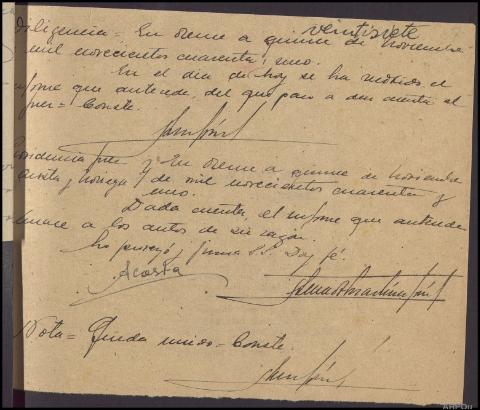 veintisiete
Diligencia = En Orense a quince de noviembre
mil novecientos cuarenta y uno.
En el dia de hoy se ha recibido el
informe que antecede, del que paso a dar cuenta al
Juez = Conste.
Providencia Juez } En Orense a quince de noviembre
Acosta y Noriega } de mil novecientos cuarenta y
uno.
Dada cuenta, el informe que antecede
únase a los autos de su razón.
Lo proveyó y firma S.S. Doy fé.
Acosta
Nota = Queda unido = Conste.
AHPOu